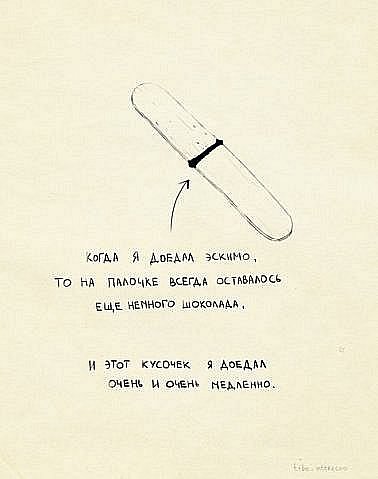 КОГДА Я ДОЕДАЛ ЭСКИМО,
ТО НА ПАЛОЧКЕ ВСЕГДА ОСТАВАЛОСЬ
ЕЩЕ НЕМНОГО ШОКОЛАДА,
И ЭТОТ КУСОЧЕК Я ДОЕДАЛ
ОЧЕНЬ И ОЧЕНЬ МЕДЛЕННО.